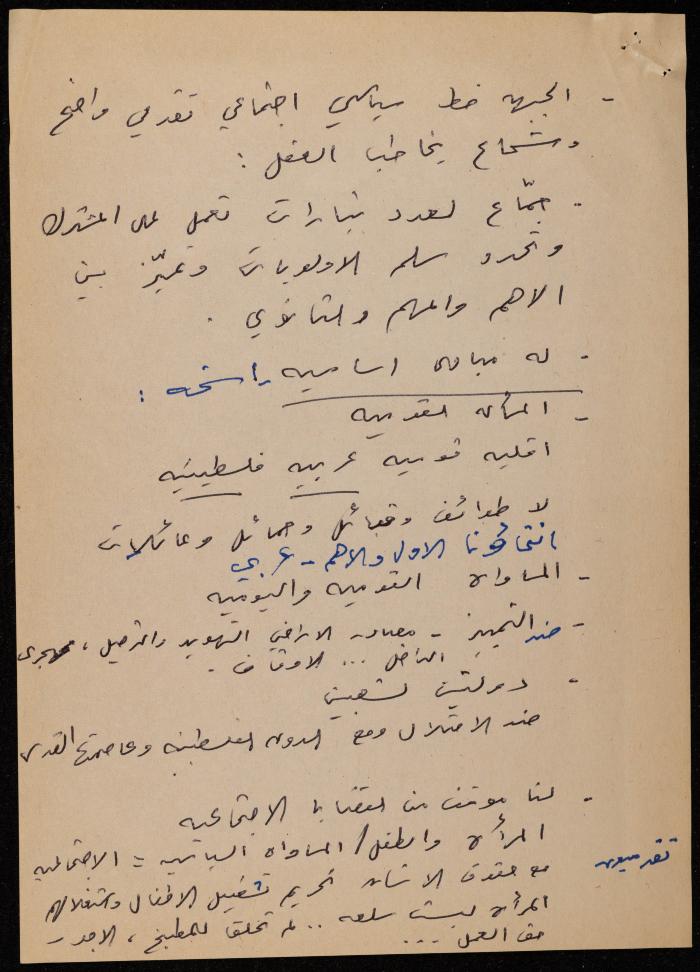 - الجبهه خط سياسي اجتماعي تقدمي واضح
وشجاع يخاطب العقل :
- جمّاع لعدد تيارات تعمل على المشترك
وتحدد سلم الاولويات وتميّز بين
الاهم والمهم والثانوي .
- له مبادئ اساسيه راسخه :
- المسأله القوميه
اقليه قوميه عربيه فلسطينيه
لا طوائف وقبائل وحمائل وعائلات
انتماؤنا الاول والاهم - عربي
- المساواه القوميه واليوميه
- ضد التمييز - مصادره الاراضي التهويد والترحيل ، مهجري
الداخل ... الاوقاف .
- دولتين لشعبين
ضد الاحتلال ومع الدوله الفلسطينيه وعاصمتها القدس
- لنا موقف من القضايا الاجتماعيه
المرأه والطفل / المساواه السياسيه = الاجتماعيه
تقدميون
مع حقوق الانسان تحريم تشغيل الاطفال واستغلالهم
المرأه ليست سلعه .. لم تخلق للمطبخ ، الاجور -
حق العمل ...